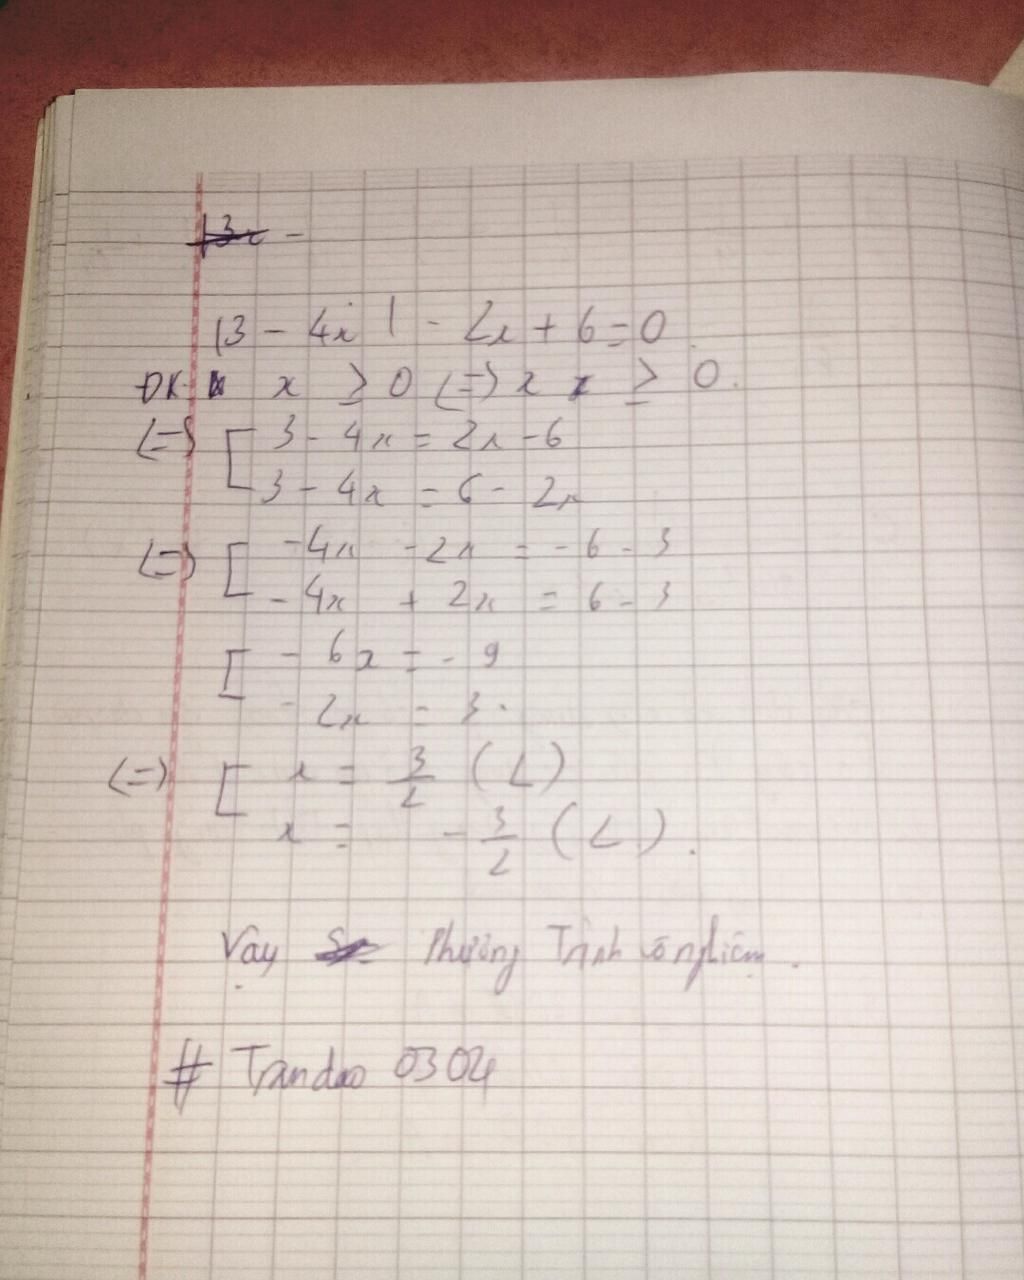 |3 - 4x| - 2x + 6 = 0
ĐK: x ≥ 0 (=) x ≥ 0.
(=) [ 3 - 4x = 2x - 6
3 - 4x = 6 - 2x
(=) [ -4x - 2x = -6 - 3
-4x + 2x = 6 - 3
[ -6x = -9
-2x = 3.
(=) [ x = 3/2 (L)
x = -3/2 (L).
Vậy Phương Trình nghiệm.
# Trandao 0304